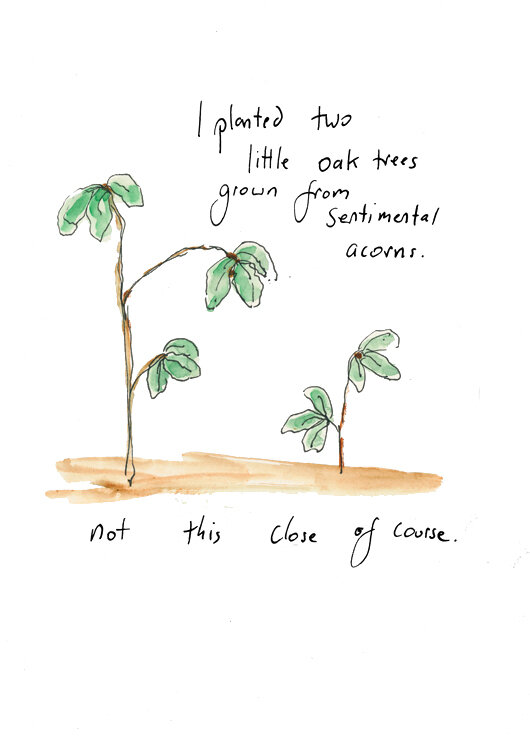 I planted two
little oak trees
grown from
sentimental
acorns.
not this close of course.